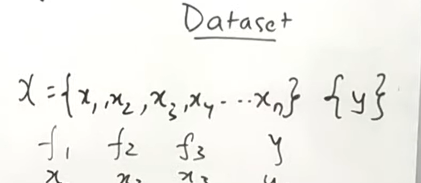 Dataset
X = {x₁, x₂, x₃, x₄ - - - xₙ} {y}
f₁ f₂ f₃ y